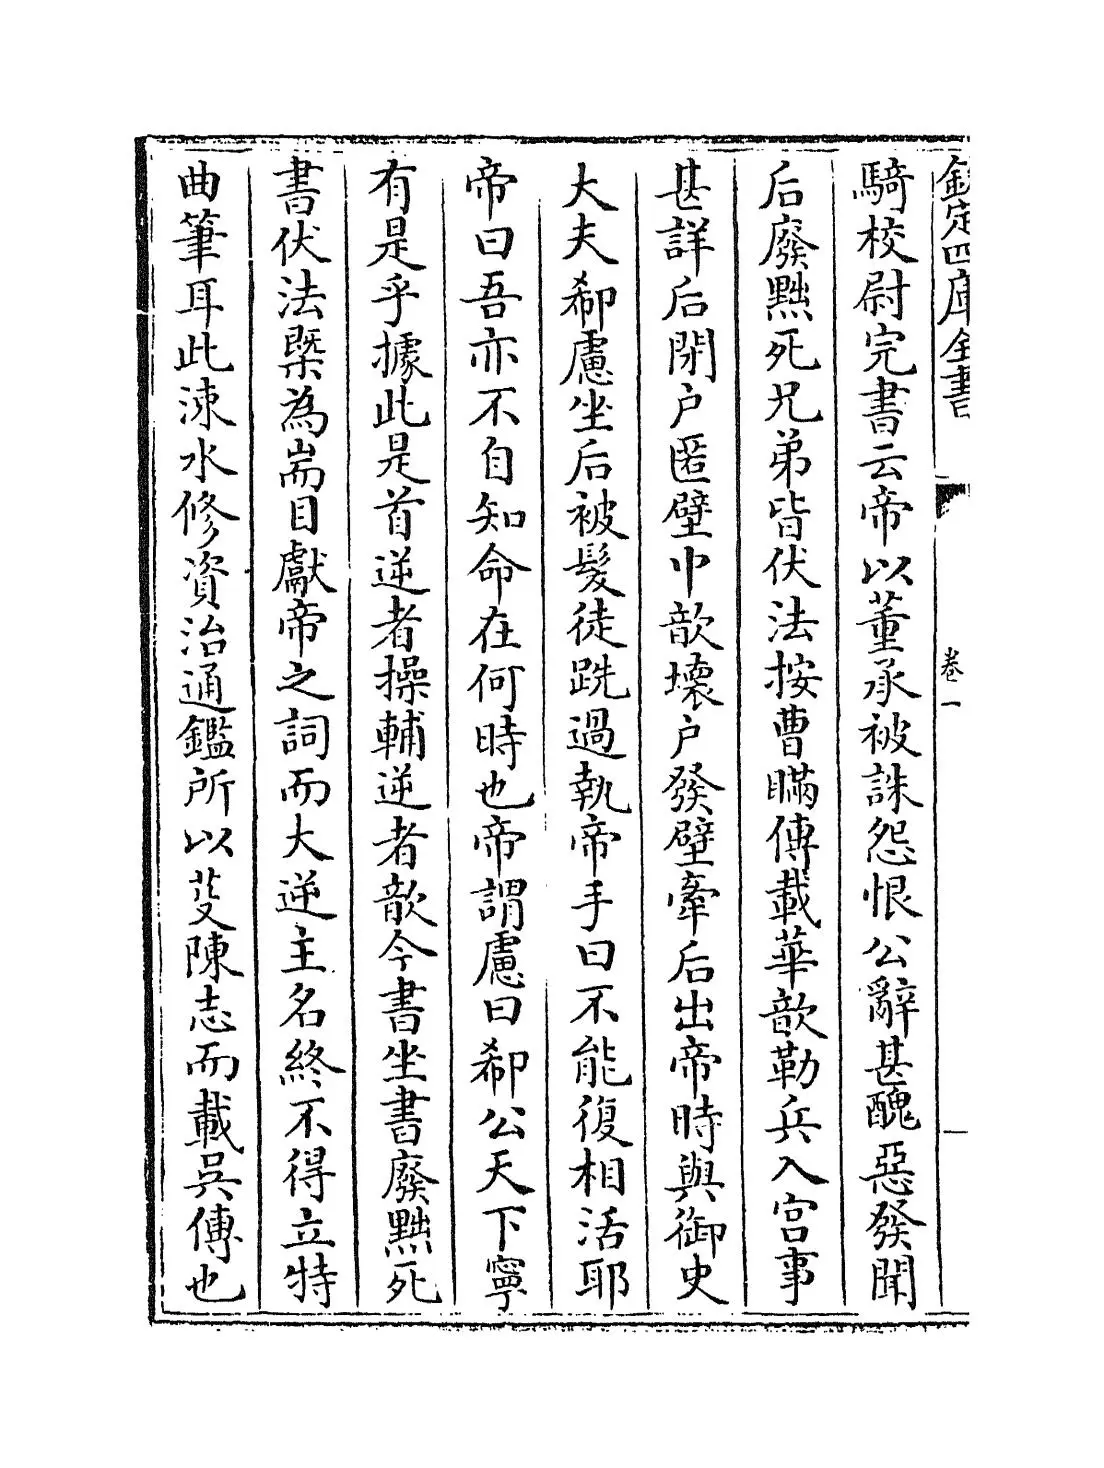 欽定四庫全書
卷一
騎校尉完書云帝以董承被誅怨恨公辭甚醜惡發聞
后廢黜死兄弟皆伏法按曹瞞傳載華歆勒兵入宮事
甚詳后閉户匿壁中歆壞户發壁牽后出帝時與御史
大夫郗慮坐后被髮徒跣過執帝手曰不能復相活耶
帝曰吾亦不自知命在何時也帝謂慮曰郗公天下寧
有是乎據此是首逆者操輔逆者歆今書坐書廢黜死
書伏法槩為耑目獻帝之詞而大逆主名終不得立特
曲筆耳此涑水修資治通鑑所以芟陳志而載吳傳也